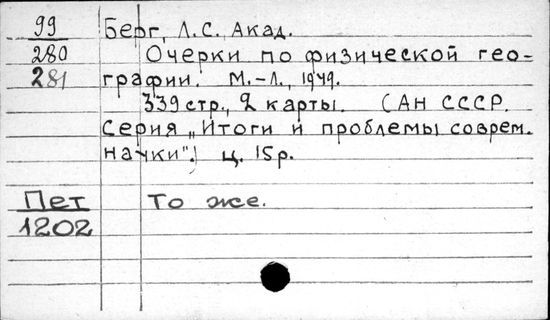 99 Берг, Л.С. Акад.
280 Очерки по физической гео-
281 графии. М.-Л., 1949.
339 стр., 2 карты. (АН СССР.
Серия „Итоги и проблемы соврем.
науки".) ц. 15р.
Пет То же.
1202